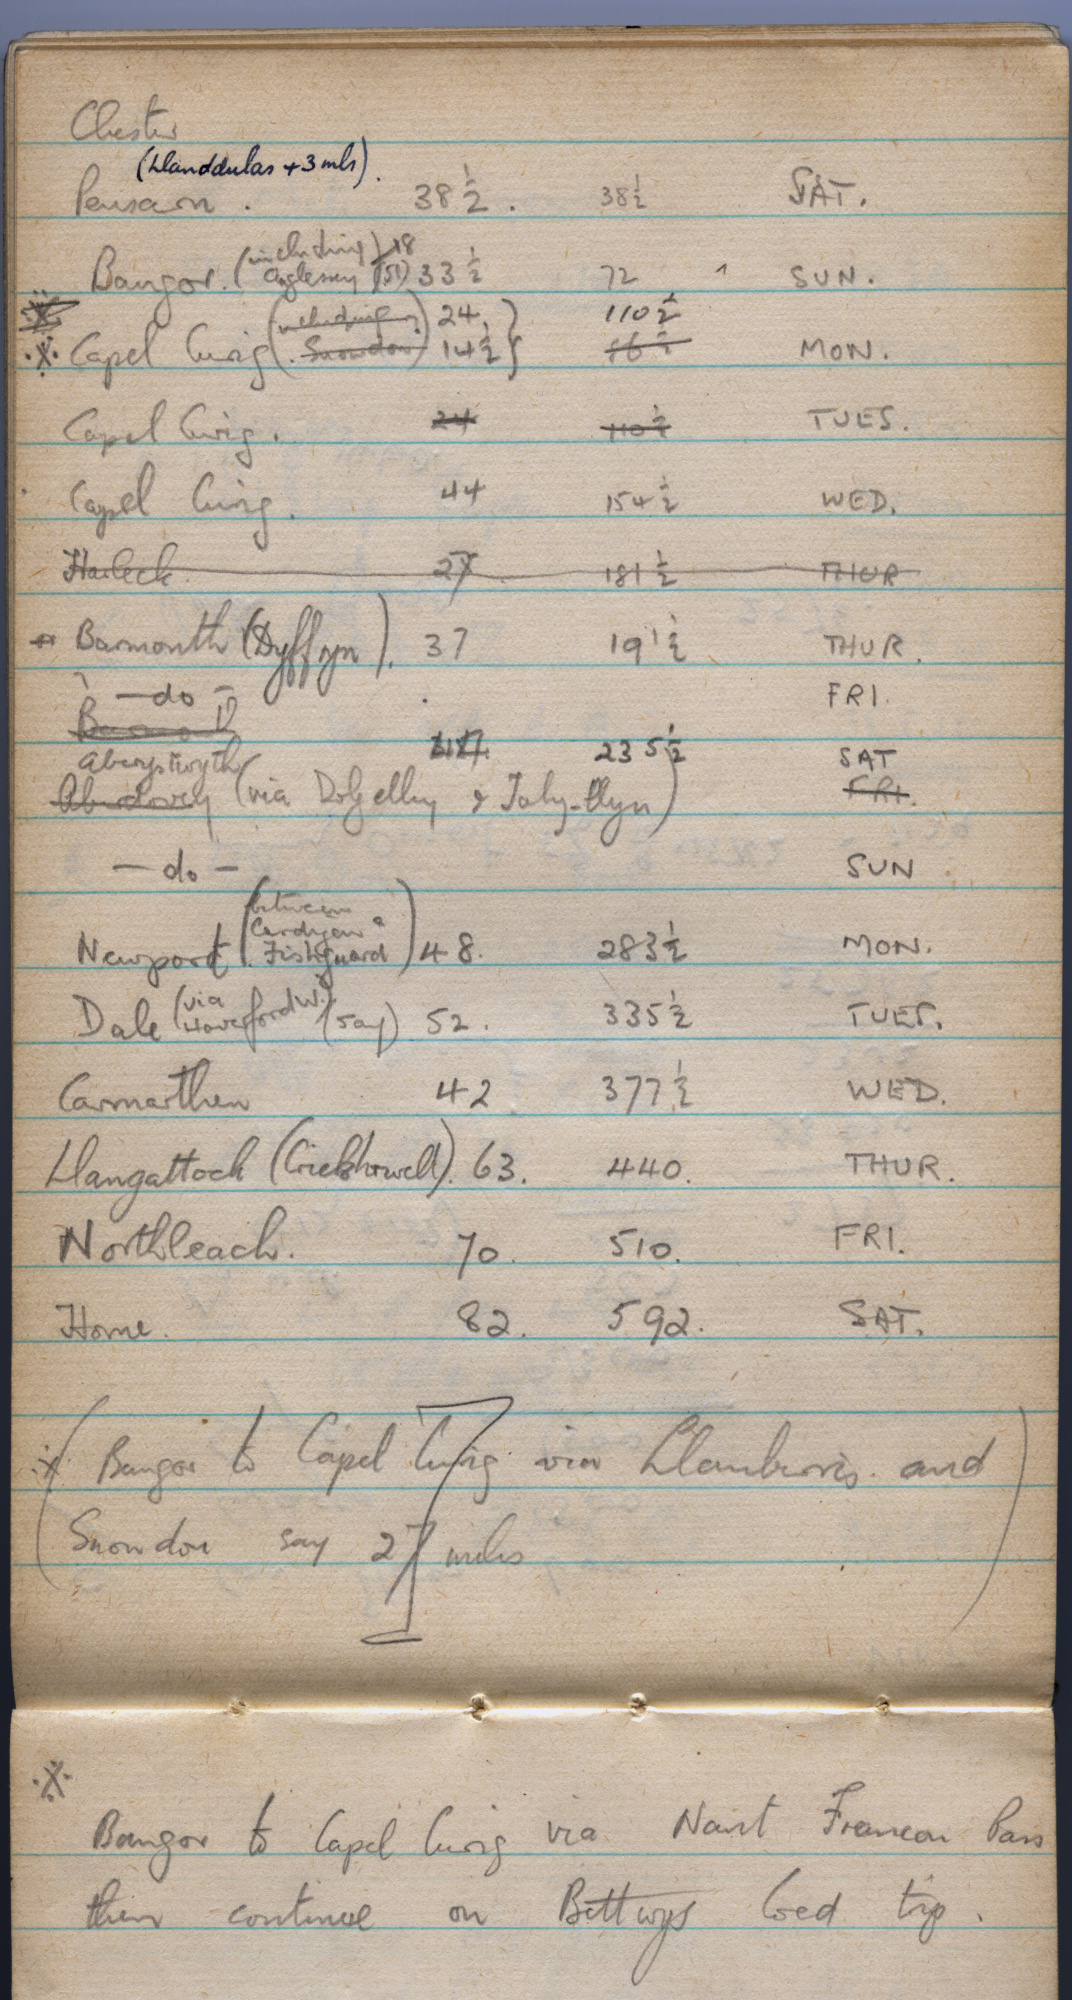 Chester
(Llanddulas + 3 mls).
Pensarn . 38½ . 38½ SAT.
Bangor. (including Anglesey 18 (51) 33½ 72 SUN.
Capel Curig (including Snowdon) 24 14½ } 110½ MON.
Capel Curig . 24 110½ TUES.
Capel Curig . 44 154½ WED.
Harlech. 27 181½ THUR
Barmouth (Dyffryn). 37 191½ THUR.
— do — FRI.
Aberystwyth 235½ SAT
Aberdovey (via Dolgelley & Taly-llyn) FRI.
— do — SUN
Newport (between Cardigan & Fishguard) 48. 283½ MON.
Dale (via Haverford W.) (say) 52. 335½ TUES.
Carmarthen 42 377½ WED.
Llangattock (Crickhowell). 63. 440. THUR.
Northleach. 70. 510. FRI.
Home. 82. 592. SAT.
(※ Bangor to Capel Curig via Llanberris and
Snowdon say 27 miles)
※
Bangor to Capel Curig via Nant Francon Pass
then continue on Bettwys Coed trip.